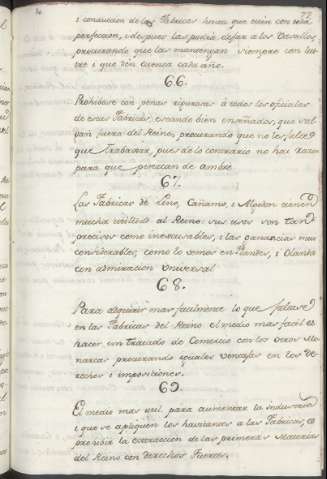 i conducion de las Fabricas hasta que esten con toda
perfeccion, i despues las podrá dejar a los Vasallos,
procurando que las mantengan siempre con lus-
tre i que den cuenta cada año.
66.
Prohibase con penas rigurosas á todos los oficiales
de estas Fabricas, estando bien enseñados, que sal-
gan fuera del Reino, procurando que no les falte
que trabaxar, pues de lo contrario no hai razon
para que perezcan de ambre.
67.
Las Fabricas de Lino, Cañamo, i Algodon tienen
mucha utilidad al Reino: sus usos son tan
precisos como inexcusables, i las ganancias mui
considerables, como lo vemos en Flandes, i Olanda
con admiracion Universal
68.
Para adquirir mas facilmente lo que faltase
en las Fabricas del Reino el medio mas facil es
hacer un tratado de Comercio con las otras Mo-
narcas procurando iguales ventajas en los De-
rechos i imposiciones.
69.
El medio mas util para aumentar la industria
i que se apliquen los havitantes a las Fabricas, es
prohibir la extraccion de las primeras Materias
del Reino con derechos Fuertes.